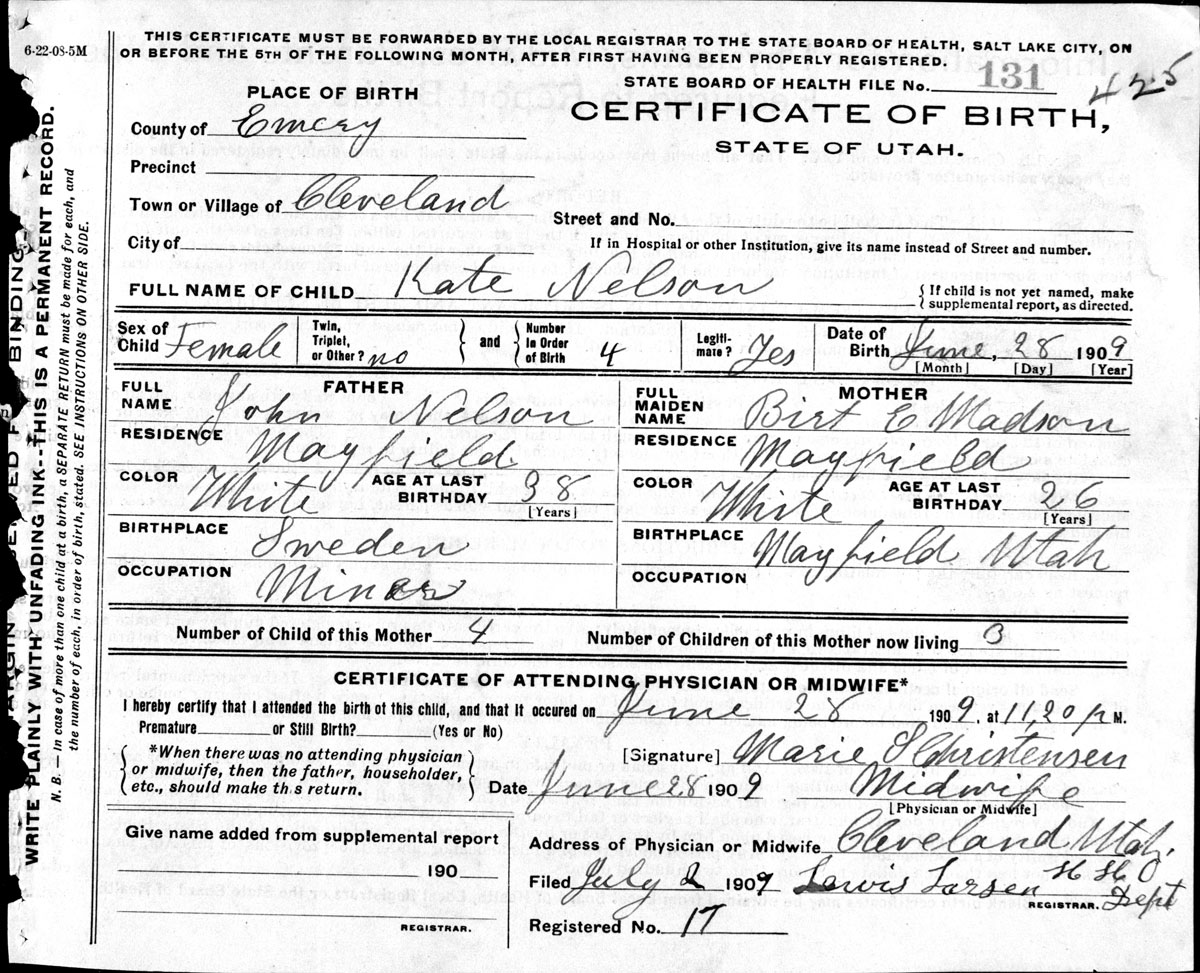 6-22-08-5M
THIS CERTIFICATE MUST BE FORWARDED BY THE LOCAL REGISTRAR TO THE STATE BOARD OF HEALTH, SALT LAKE CITY, ON
OR BEFORE THE 5TH OF THE FOLLOWING MONTH, AFTER FIRST HAVING BEEN PROPERLY REGISTERED.
STATE BOARD OF HEALTH FILE No. 131 425
PLACE OF BIRTH
CERTIFICATE OF BIRTH,
STATE OF UTAH.
County of Emery
Precinct
Town or Village of Cleveland
Street and No.
City of
If in Hospital or other Institution, give its name instead of Street and number.
FULL NAME OF CHILD Kate Nelson
{ If child is not yet named, make
supplemental report, as directed.
Sex of Child Female
Twin, Triplet, or Other? no
} and {
Number In Order of Birth 4
Legiti- mate? Yes
Date of Birth June, 28 1909
[Month] [Day] [Year]
FATHER
FULL NAME John Nelson
RESIDENCE Mayfield
COLOR White AGE AT LAST BIRTHDAY 38
[Years]
BIRTHPLACE Sweden
OCCUPATION Miner
MOTHER
FULL MAIDEN NAME Birt E Madson
RESIDENCE Mayfield
COLOR White AGE AT LAST BIRTHDAY 26
[Years]
BIRTHPLACE Mayfield Utah
OCCUPATION
Number of Child of this Mother 4 Number of Children of this Mother now living 3
CERTIFICATE OF ATTENDING PHYSICIAN OR MIDWIFE*
I hereby certify that I attended the birth of this child, and that it occured on June 28 1909, at 11,20 p M.
Premature or Still Birth? (Yes or No)
{ *When there was no attending physician
or midwife, then the father, householder,
etc., should make this return. }
[Signature] Marie S Christensen
Date June 28 1909 Midwife
[Physician or Midwife]
Give name added from supplemental report
190
REGISTRAR.
Address of Physician or Midwife Cleveland Utah.
Filed July 2 1909 Lewis Larsen H H O
REGISTRAR. Dept
Registered No. 17
WRITE PLAINLY WITH UNFADING INK--THIS IS A PERMANENT RECORD.
N. B. — In case of more than one child at a birth, a SEPARATE RETURN must be made for each, and
the number of each, in order of birth, stated. SEE INSTRUCTIONS ON OTHER SIDE.